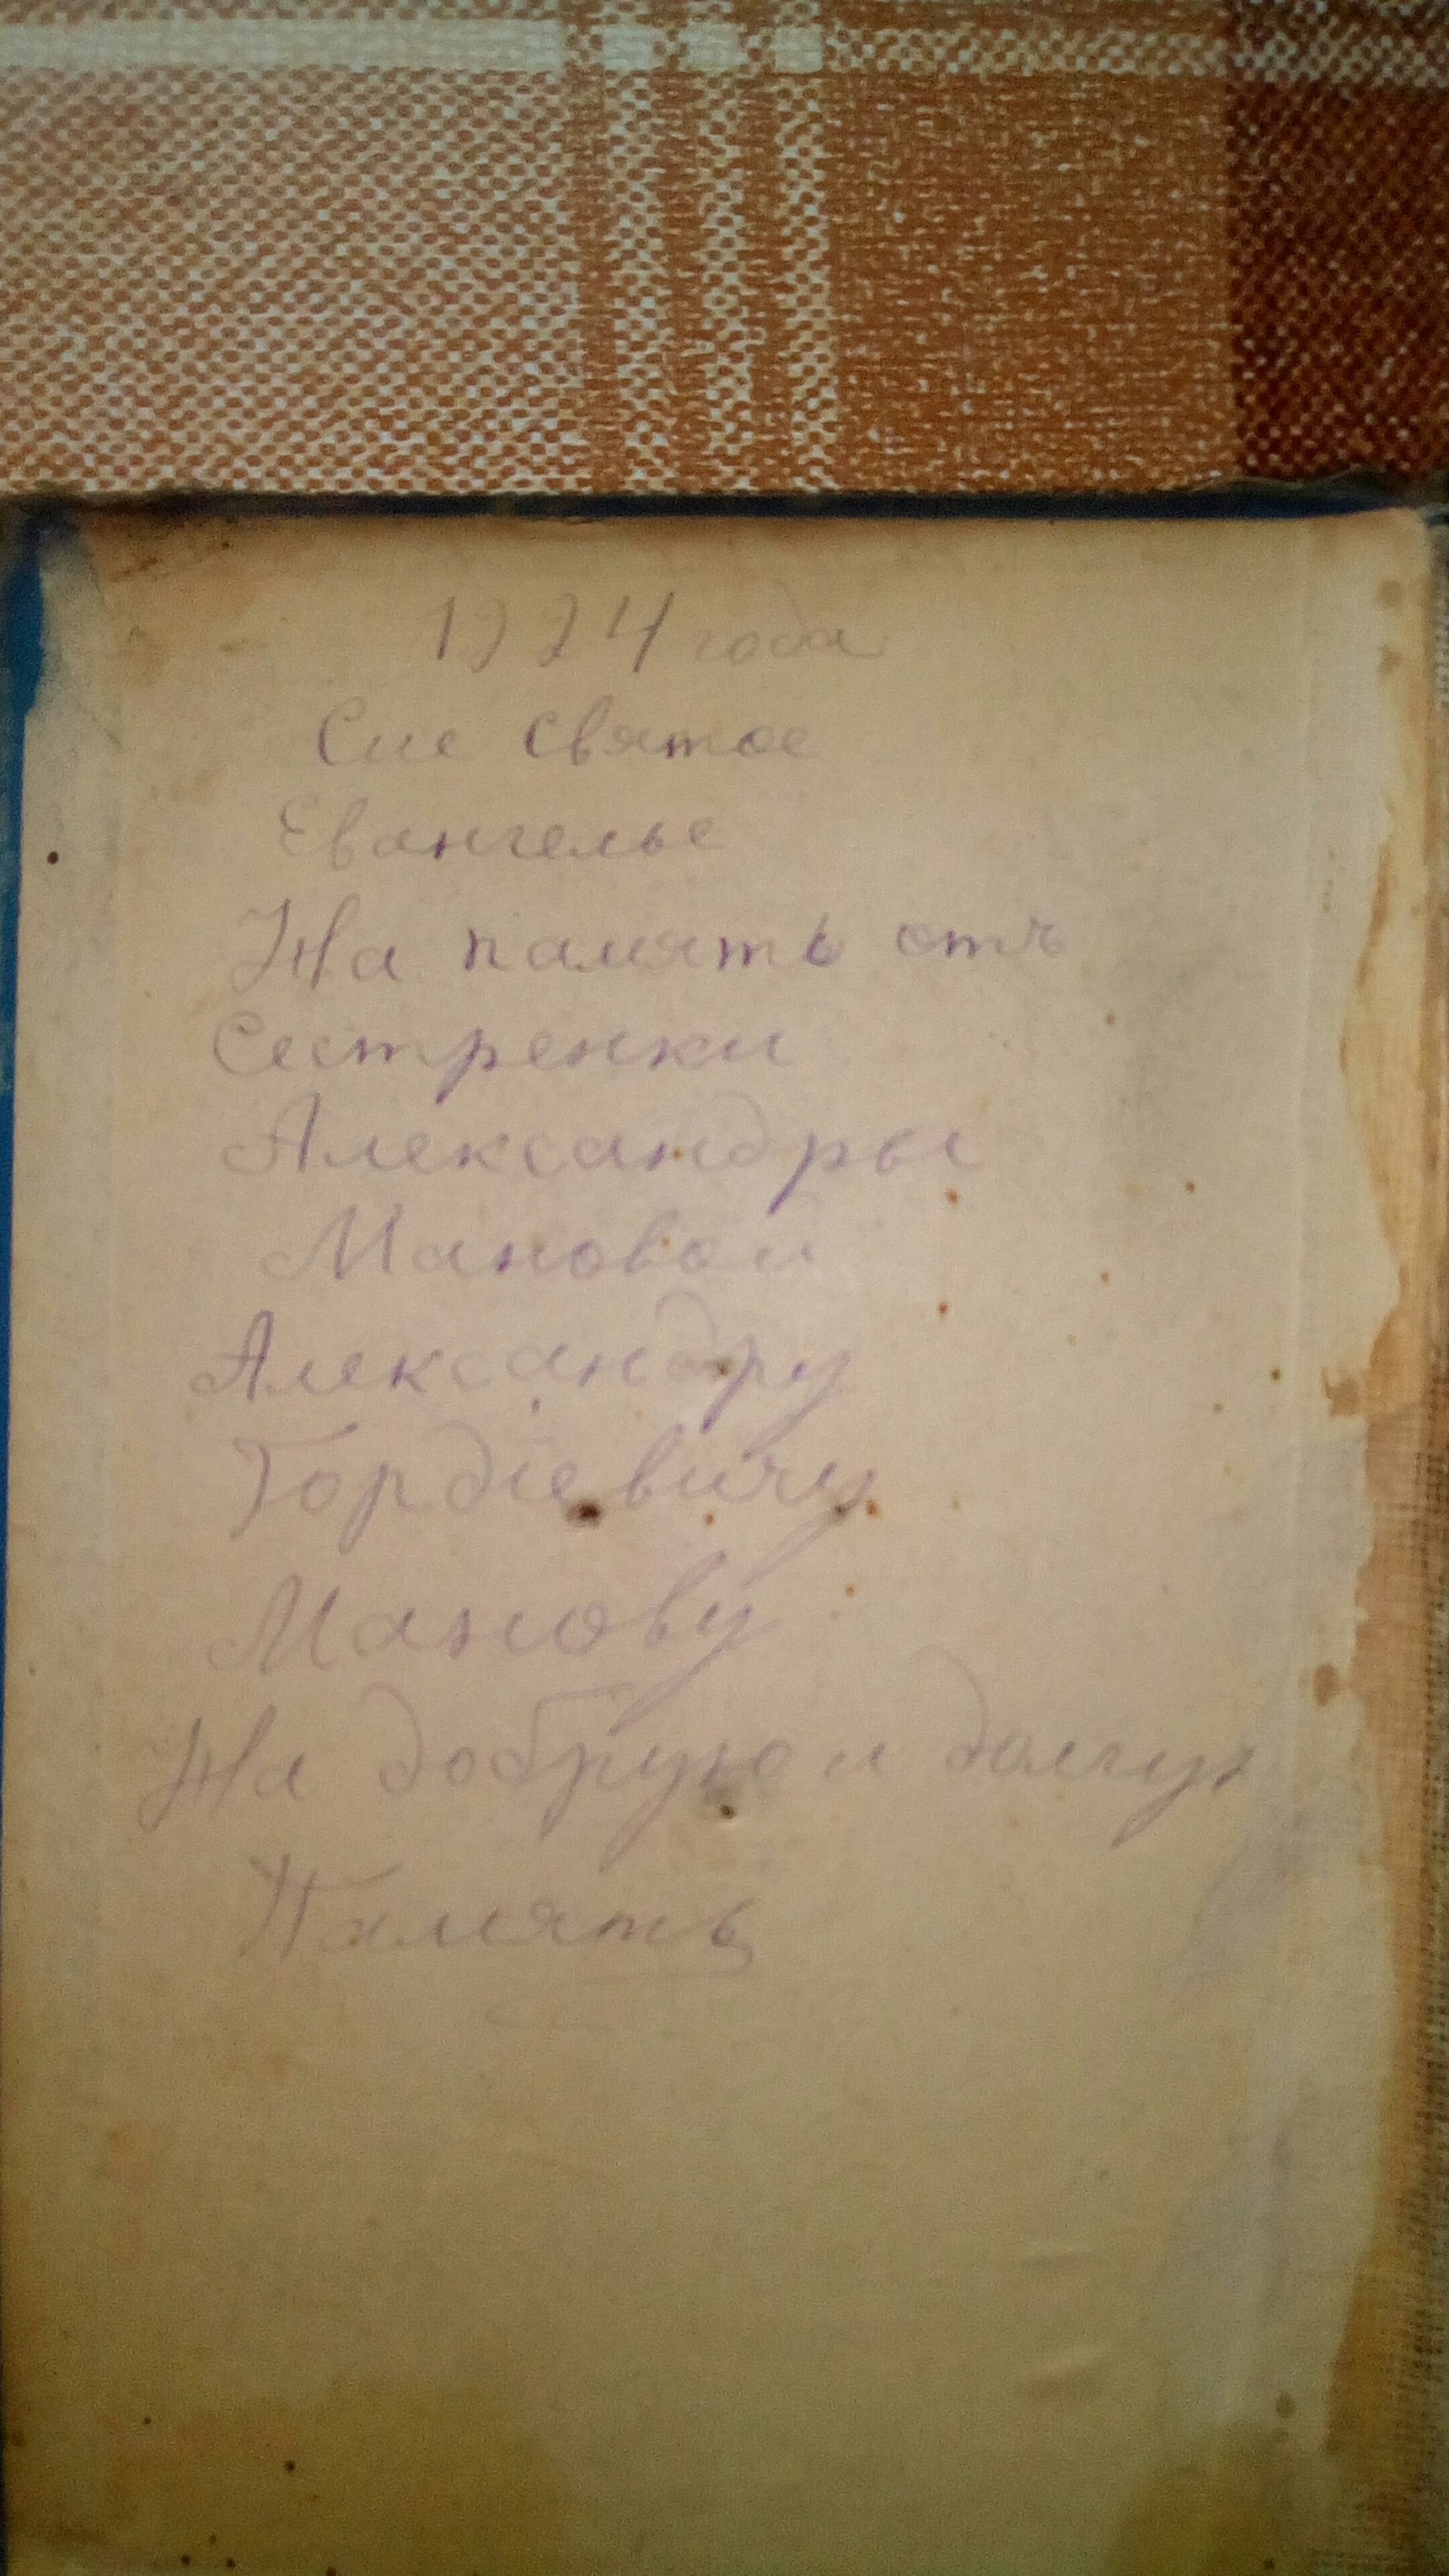 1924 года
Сие Святое
Евангелье
На память отъ
Сестренки
Александры
Мановой
Александру
Гордiевичу
Манову
На добрую и долгую
Память